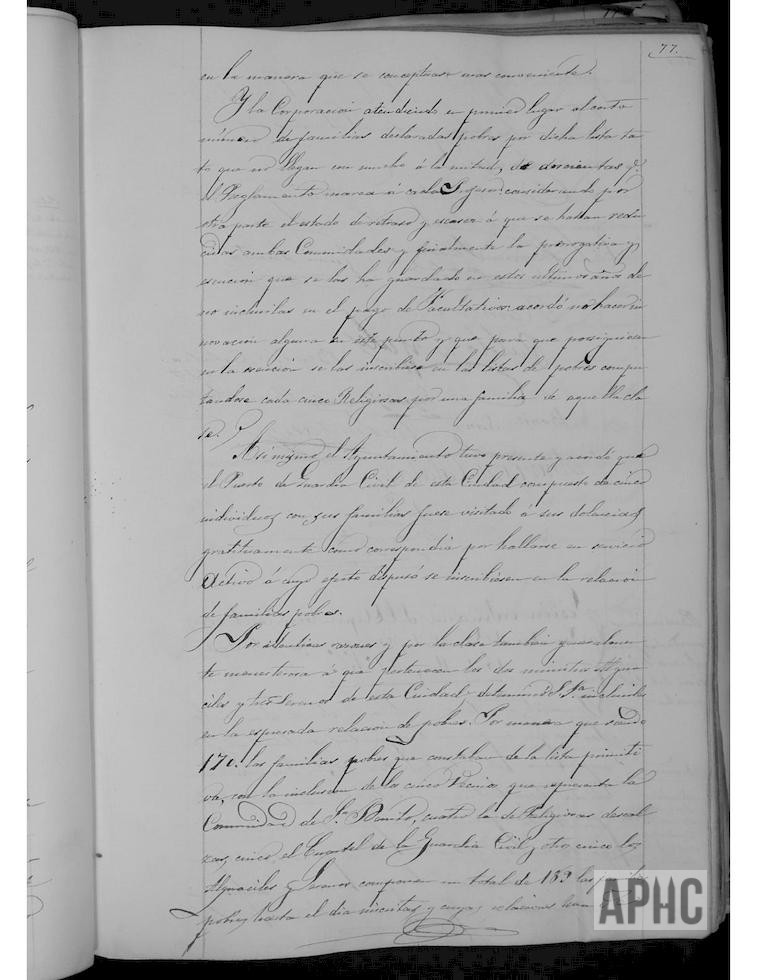 77.
en la manera que se conceptuase mas conveniente.
Y la Corporacion atendiendo en primer lugar al corto
número de familias declaradas pobres por dicha lista ta
to que no llegan con mucho á la mitad, de doscientas q.e
el Reglamento marca á cada Profesor: considerando por
otra parte el estado de retraso y escasez á que se hallan redu
cidas ambas Comunidades y finalmente la prerrogativa y
esencion que se las ha guardado en estos ultimos años de
no incluirlas en el pago de Facultativos: acordó no hacer in
novacion alguna en este punto y que para que prosiguiesen
en la esencion se las inscribiese en las listas de pobres compu
tandose cada cinco Religiosas por una familia de aquella cla
se.
Asi mismo el Ayuntamiento tuvo presente y acordó que
el Puesto de Guardia Civil de esta Ciudad compuesto de cinco
individuos con sus familias fuese visitado á sus dolencias
gratuitamente como correspondia por hallarse en servicio
activo á cuyo efecto dispuso se inscribiesen en la relacion
de familias pobres.
Por identicas razones y por la clase tambien generalmen
te menesterosa á que pertenecen los dos ministros Algua
ciles y tres Serenos de esta Ciudad, determinó S. S.a incluirles
en la espresada relacion de pobres. Por manera que siendo
170. las familias pobres que constaban de la lista primiti
va, con la inclusion de las cinco vecinas que representa la
Comunidad de S.n Benito, cuatro la de Religiosas descal
zas, cinco el Cuartel de la Guardia Civil y otros cinco los
Alguaciles y Serenos componen un total de 189 las familias
pobres hasta el dia inscritas y cuyas relaciones han
APHC